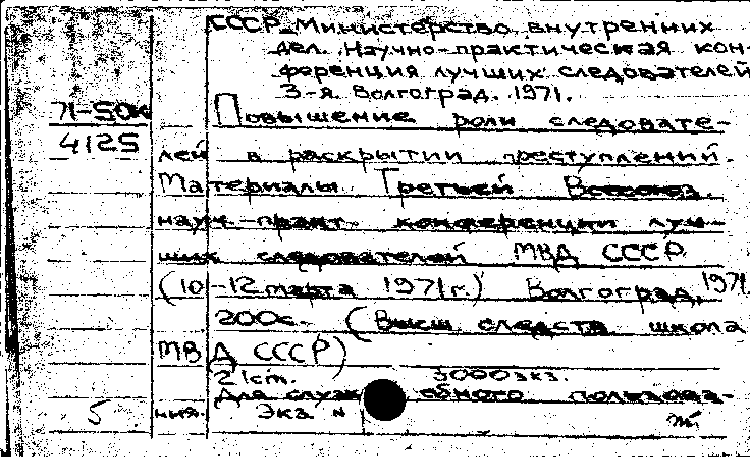 СССР. Министерство внутренних
дел. Научно-практическая кон-
ференция лучших следователей
3-я. Волгоград. 1971.
71-50к
4125
Повышение роли следовате-
лей в раскрытии преступлений.
Материалы Третьей Всесоюз.
науч.-практ. конференции луч-
ших следователей МВД СССР
(10-12 марта 1971г.) Волгоград, 1971
200с. (Высш. следств. школа
МВД СССР)
21см. 3000экз.
Для служебного пользова-
5 ния. Экз. №